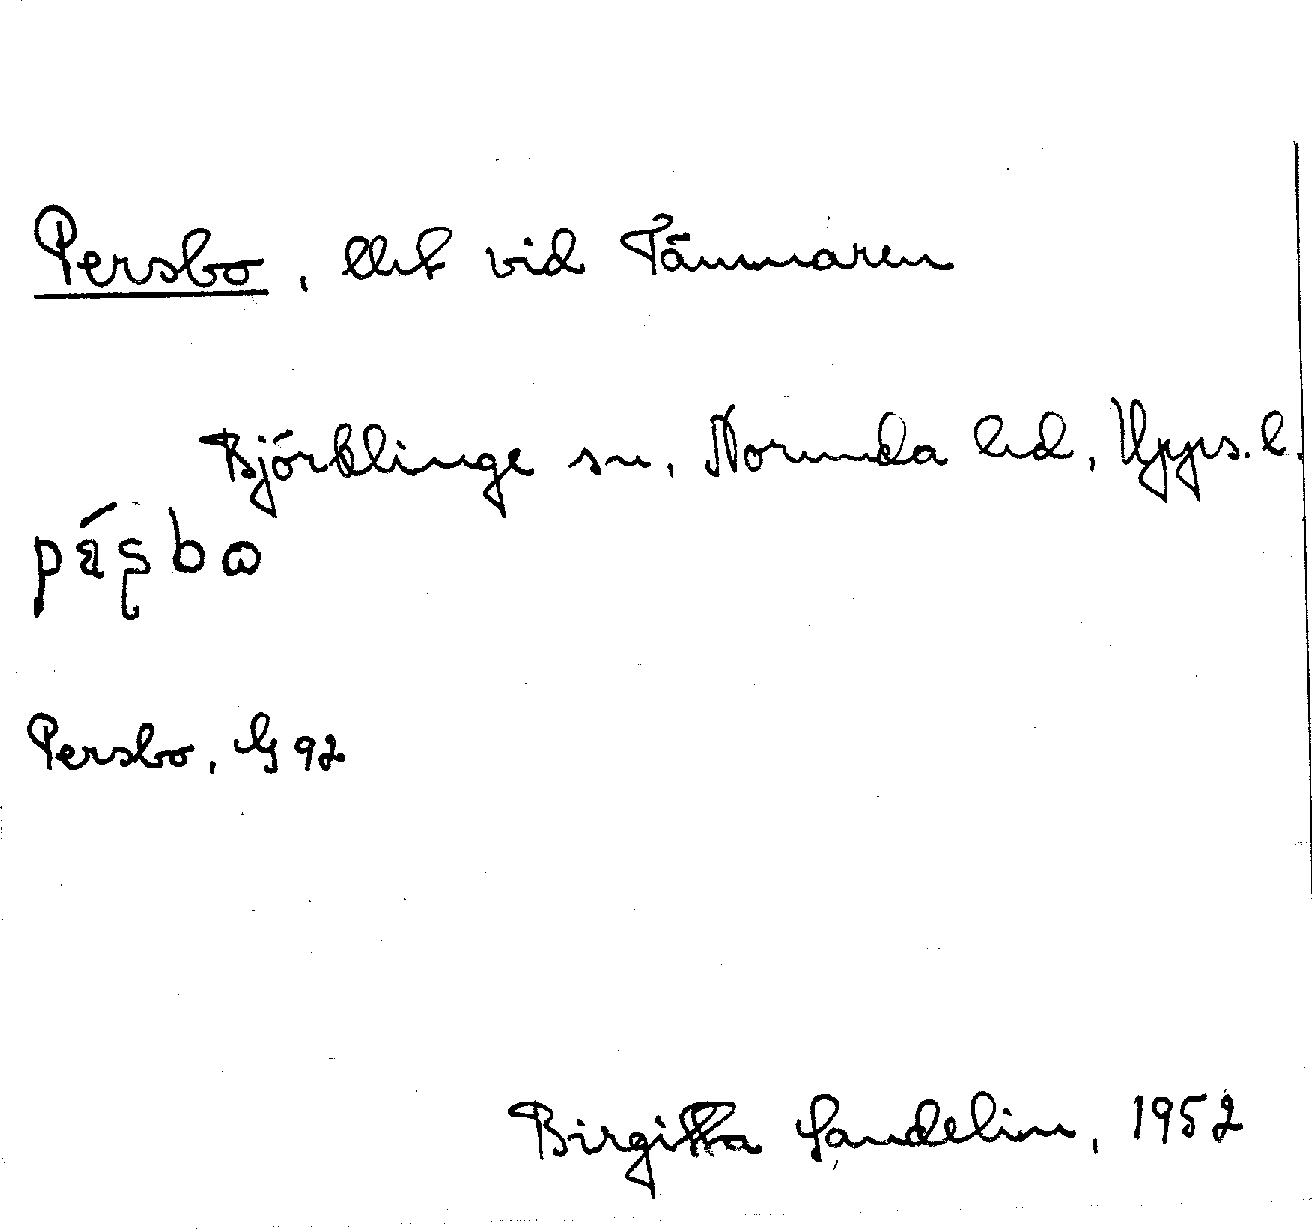 Persbo, vid Tämnaren
Björklinge sn, Norunda hd, Upps. l.
Persbo, G 92
Birgitta Sandelin, 1952